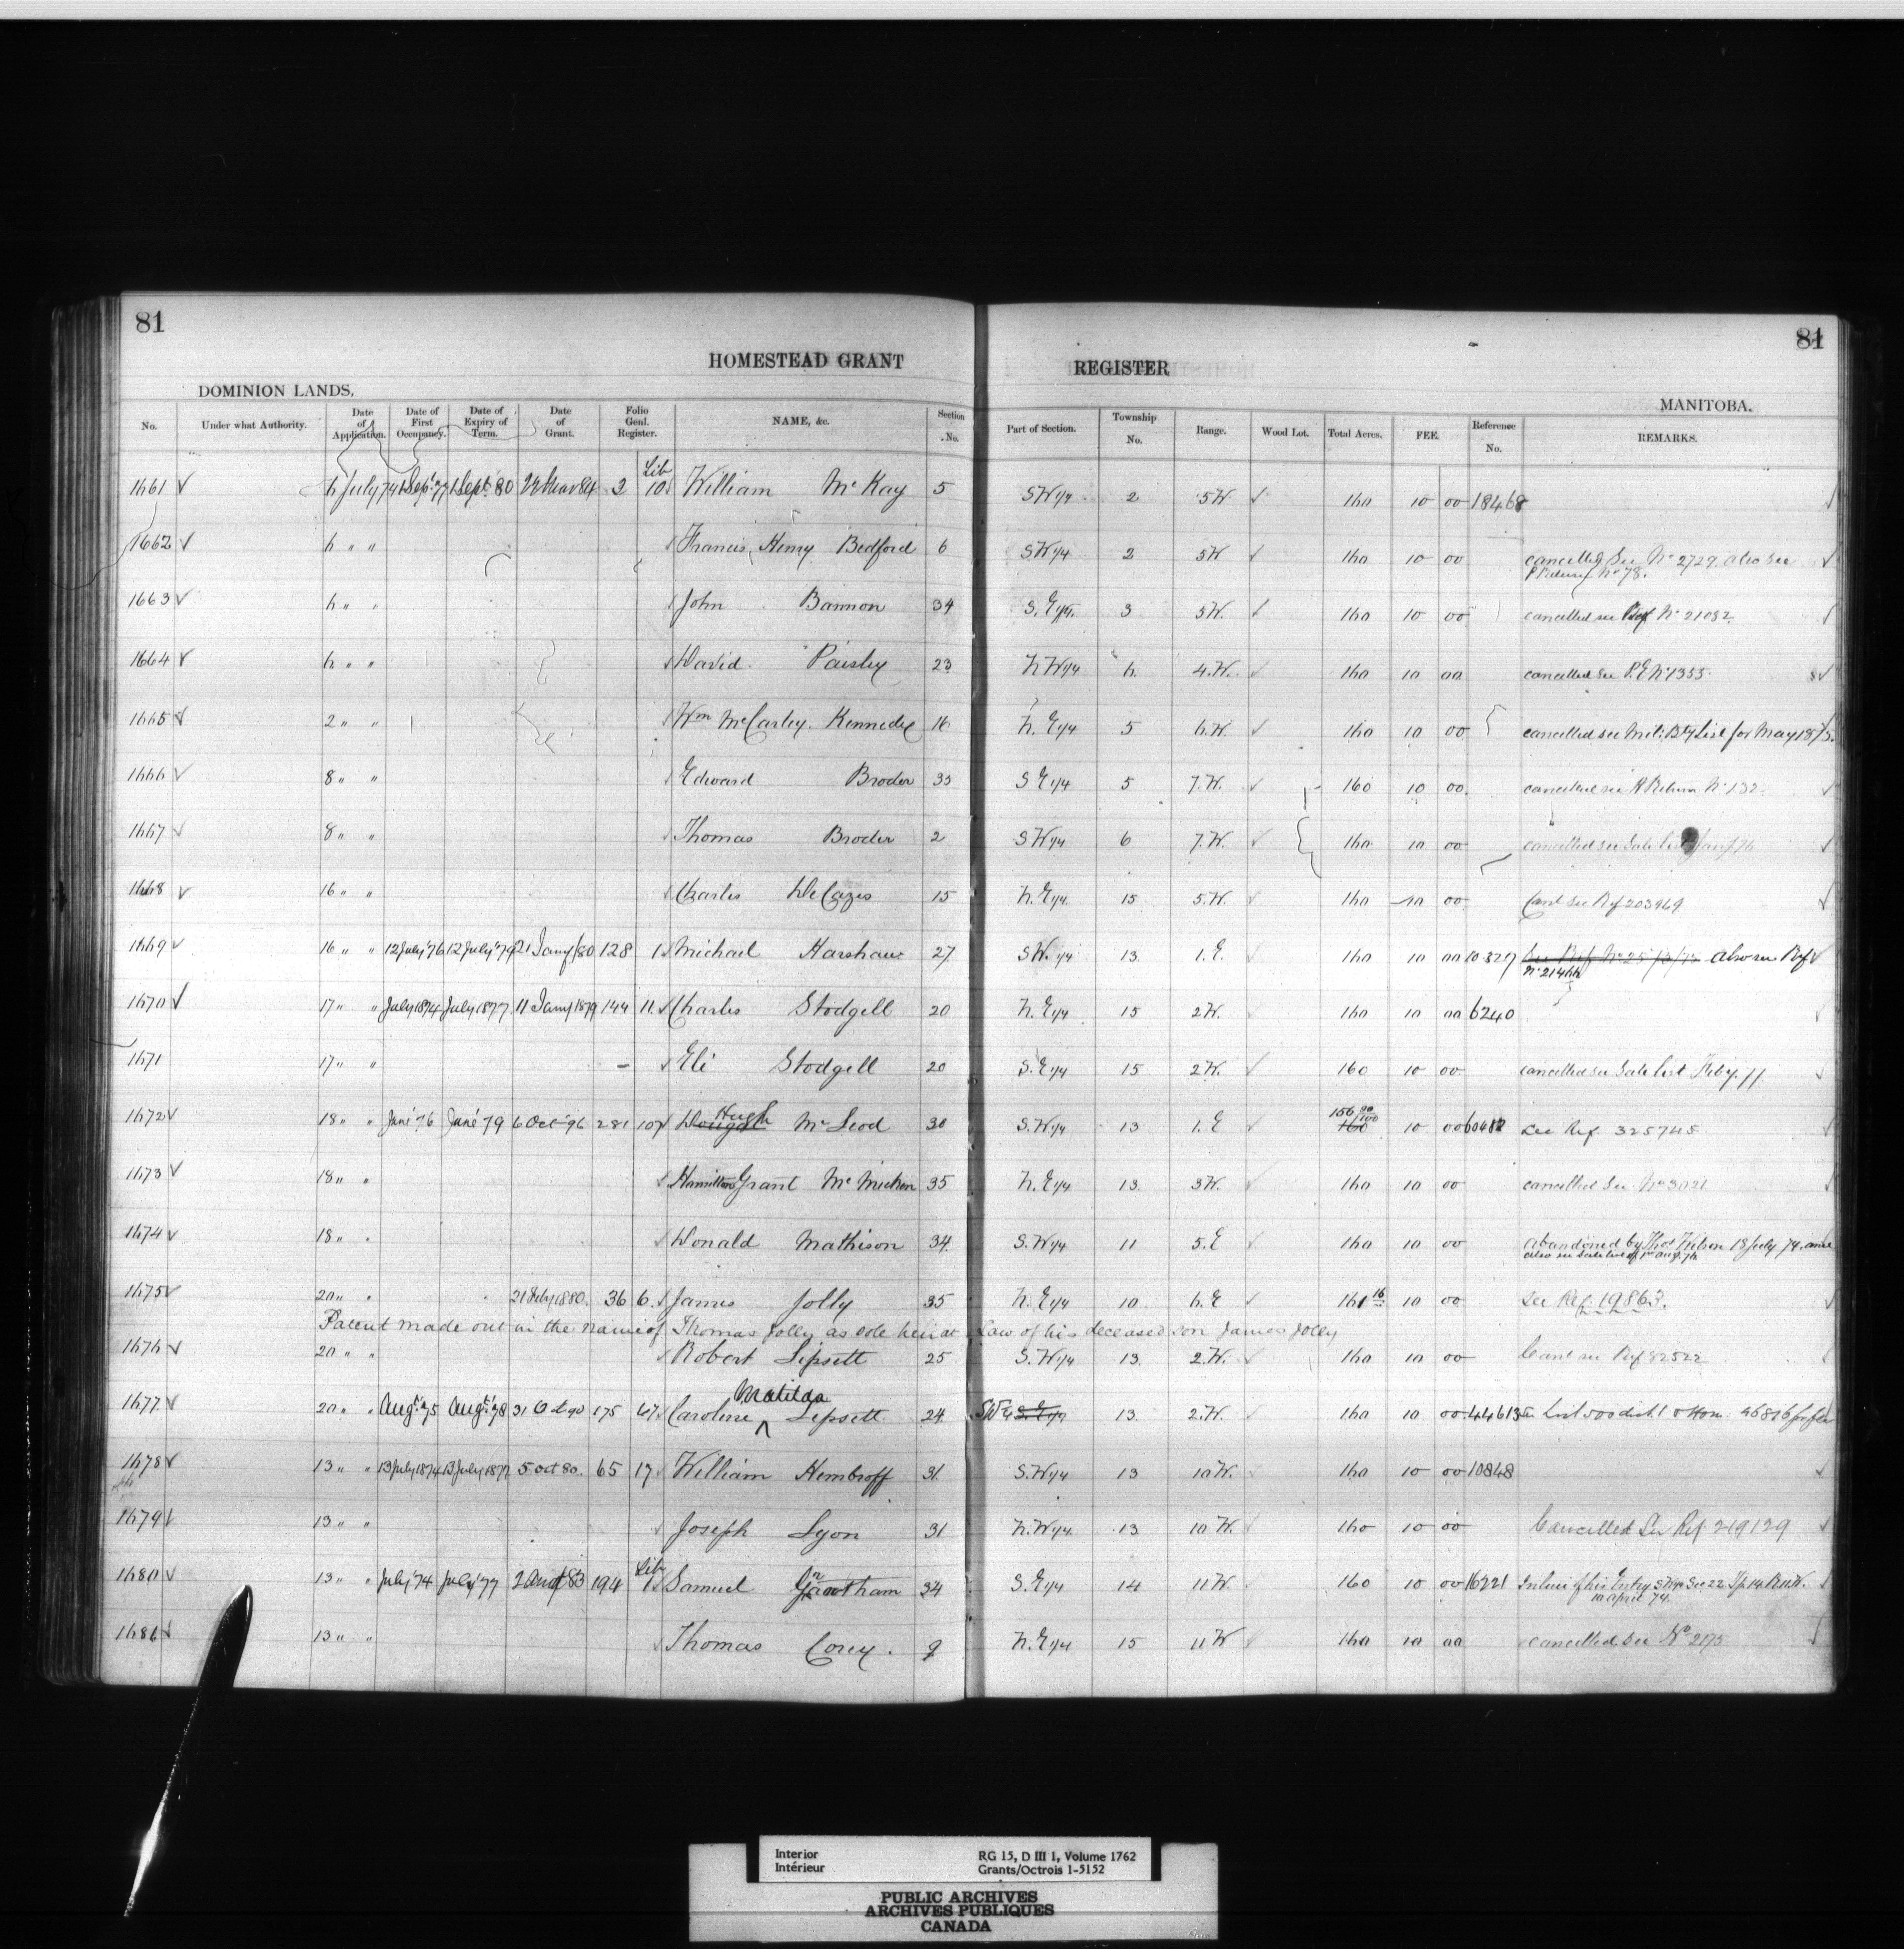 81
81
HOMESTEAD GRANT REGISTER
DOMINION LANDS, MANITOBA.
No. Under what Authority. Date of Application. Date of First Occupancy. Date of Expiry of Term. Date of Grant. Folio Genl. Register. NAME, &c. Section No. Part of Section. Township No. Range. Wood Lot. Total Acres. FEE. Reference No. REMARKS.
1661 6 July 74 1 Sept 77 1 Sept 80 3 Lib 10 William McKay 5 SW 1/4 2 5W. 160 10 00 18468
1662 6 " " Francis Henry Bedford 6 SW 1/4 2 5W 160 10 00 cancelled See No 2729. also see
P Return No 78.
1663 6 " " John Bannon 34 S.E 1/4 3 5W. 160 10 00 cancelled see Ref No 21082.
1664 6 " " David Paisley 23 N W 1/4 6. 4.W. 160 10 00 cancelled see P.E No 1355.
1665 2 " " Wm McCarley Kennedy 16 N. E 1/4 5 6.W. 160 10 00 cancelled see Mil: Bty List for May 1875.
1666 8 " " Edward Broder 33 S E 1/4 5 7.W. 160 10 00 cancelled see H Return No 132
1667 8 " " Thomas Broder 2 SW 1/4 6 7.W. 160 10 00 cancelled see Sale list
1668 16 " " Charles DeCazes 15 N.E 1/4 15 5.W. 160 10 00 Canl see Ref 203969
1669 16 " " 12 July '76 12 July '79 21 Jany/80 128 1 Michael Harshaw 27 SW. 1/4 13 1.E 160 10 00 10327 also see Ref
No 21466
1670 17 " " July 1874 July 1877 11 Jany 1879 144 11. Charles Stodgell 20 N.E 1/4 15 2W. 160 10 00 6240
1671 17 " " Eli Stodgell 20 S.E 1/4 15 2W. 160 10 00 cancelled see Sale list Feby. 77
1672 18 " " Jan '76 Jan '79 6 Oct '96 281 107 Dougal Hugh McLeod 30 S.W 1/4 13 1.E 160 156 90/100 10 00 60482 See Ref. 325745
1673 18 " " Hamilton Grant McMicken 35 N.E 1/4 13 3W. 160 10 00 cancelled See No 3021
1674 18 " " Donald Mathison 34 S.W 1/4 11 5.E 160 10 00 Abandoned by Thos 18 July 74. and
also see Sale list of
1675 20 " " 21 Feby 1880. 36 6. James Jolly 35 N.E 1/4 10 6.E 161 16 10 00 See Ref. 19863.
Patent made out in the name of Thomas Jolly as sole heir at Law of his deceased son James Jolly
1676 20 " " Robert Lipsett 25 S.W 1/4 13 2.W. 160 10 00 Canl see Ref 82522
1677 20 " " Augt '75 Augt '78 31 Oct 90 175 67 Caroline Matilda Lipsett 24 SW 1/4 S.E 1/4 13 2.W. 160 10 00 44613
1678 13 " " 13 July 1874 13 July 1877 5 Oct 80. 65 17 William Kembroff 31 S.W 1/4 13 10W. 160 10 00 10848
1679 13 " " Joseph Lyon 31 N.W 1/4 13 10W. 160 10 00 Cancelled See Ref 219129
1680 13 " " July '74 July '77 194 Lib 1 Samuel 34 S.E 1/4 14 11W. 160 10 00 16221 In lieu of his Entry S W 1/4 Sec 22 Tp. 14 R 11 W.
10 April 74.
1681 13 " " Thomas Corey. 9 N.E 1/4 15 11W 160 10 00 cancelled see No 2175
Interior
Intérieur
RG 15, D III 1, Volume 1762
Grants/Octrois 1-5152
PUBLIC ARCHIVES
ARCHIVES PUBLIQUES
CANADA